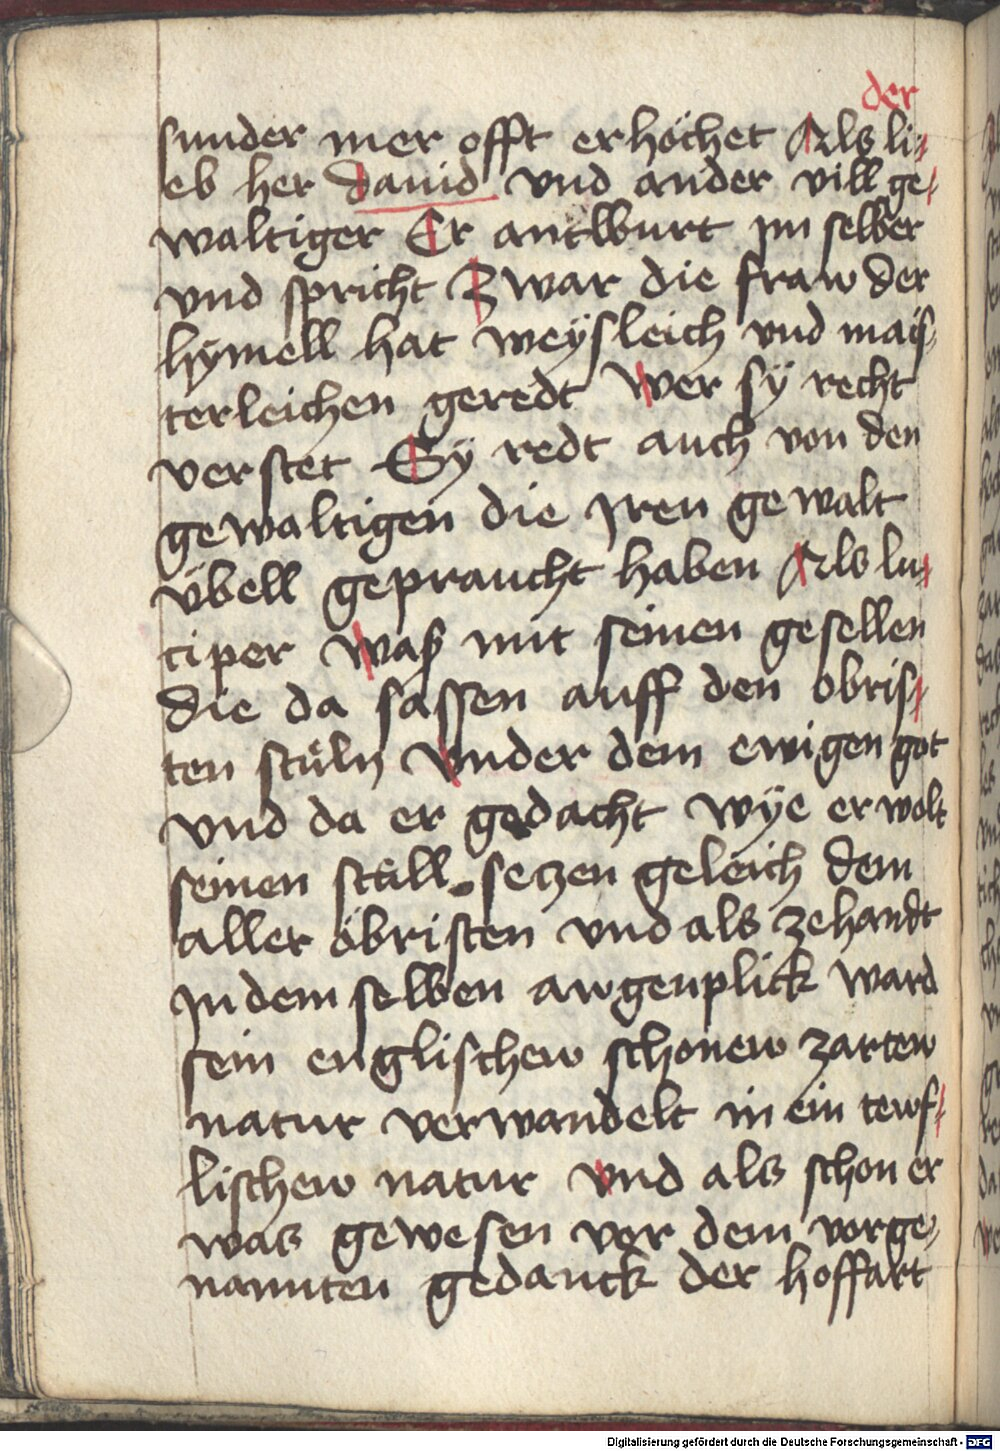 der
sunder mer offt erhöchet Als li-
eb her dauid vnd ander vill ge-
waltiger Er antwurt im selber
vnd spricht Zwar die fraw der
hymell hat weÿsleich vnd mais-
terleichen geredt Wer sÿ recht
verstet Sÿ redt auch von den
gewaltigen die iren gewalt
übell gepraucht haben Als lu-
ciper Waß mit seinen gesellen
die da sassen auff den obris-
ten stüln Vnder dem ewigen got
vnd da er gedacht wÿe er wolt
seinen stüll seczen geleich dem
aller öbristen vnd als zehandt
in dem selben awgenplick ward
sein englischew schonew zartew
natur verwandelt in ein tewf-
lischew natur Vnd als schon er
was gewesen vor dem vorge-
nannten gedanck der hoffart
Digitalisierung gefördert durch die Deutsche Forschungsgemeinschaft - DFG